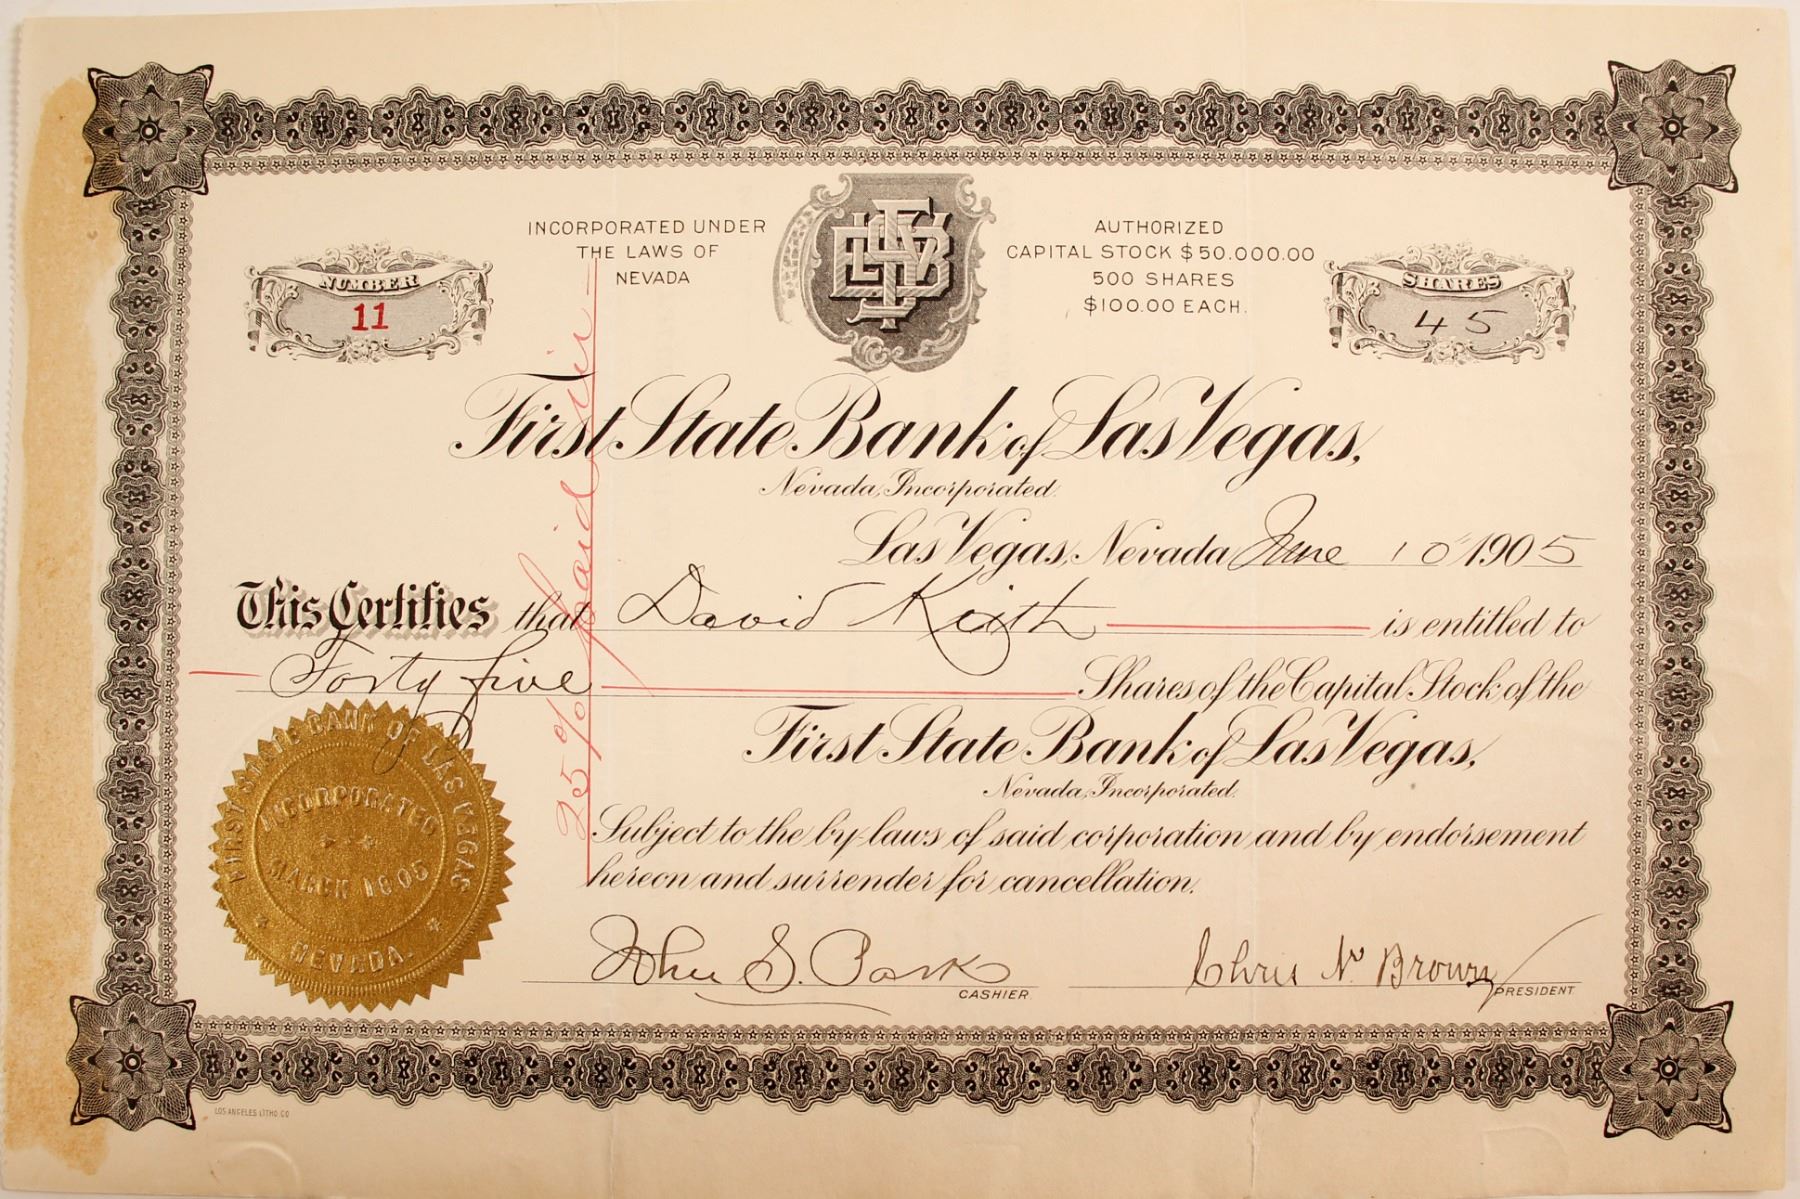 INCORPORATED UNDER
THE LAWS OF
NEVADA
AUTHORIZED
CAPITAL STOCK $50.000.00
500 SHARES
$100.00 EACH.
NUMBER
11
SHARES
45
First State Bank of Las Vegas,
Nevada, Incorporated.
Las Vegas, Nevada June 10 1905
This Certifies that David Keith is entitled to
Forty five Shares of the Capital Stock of the
First State Bank of Las Vegas,
Nevada, Incorporated.
Subject to the by-laws of said corporation and by endorsement
hereon and surrender for cancellation.
25% paid in
FIRST STATE BANK OF LAS VEGAS
INCORPORATED
MARCH 1905
NEVADA.
John S. Park
CASHIER
Chris N. Brown
PRESIDENT
LOS ANGELES LITHO. CO